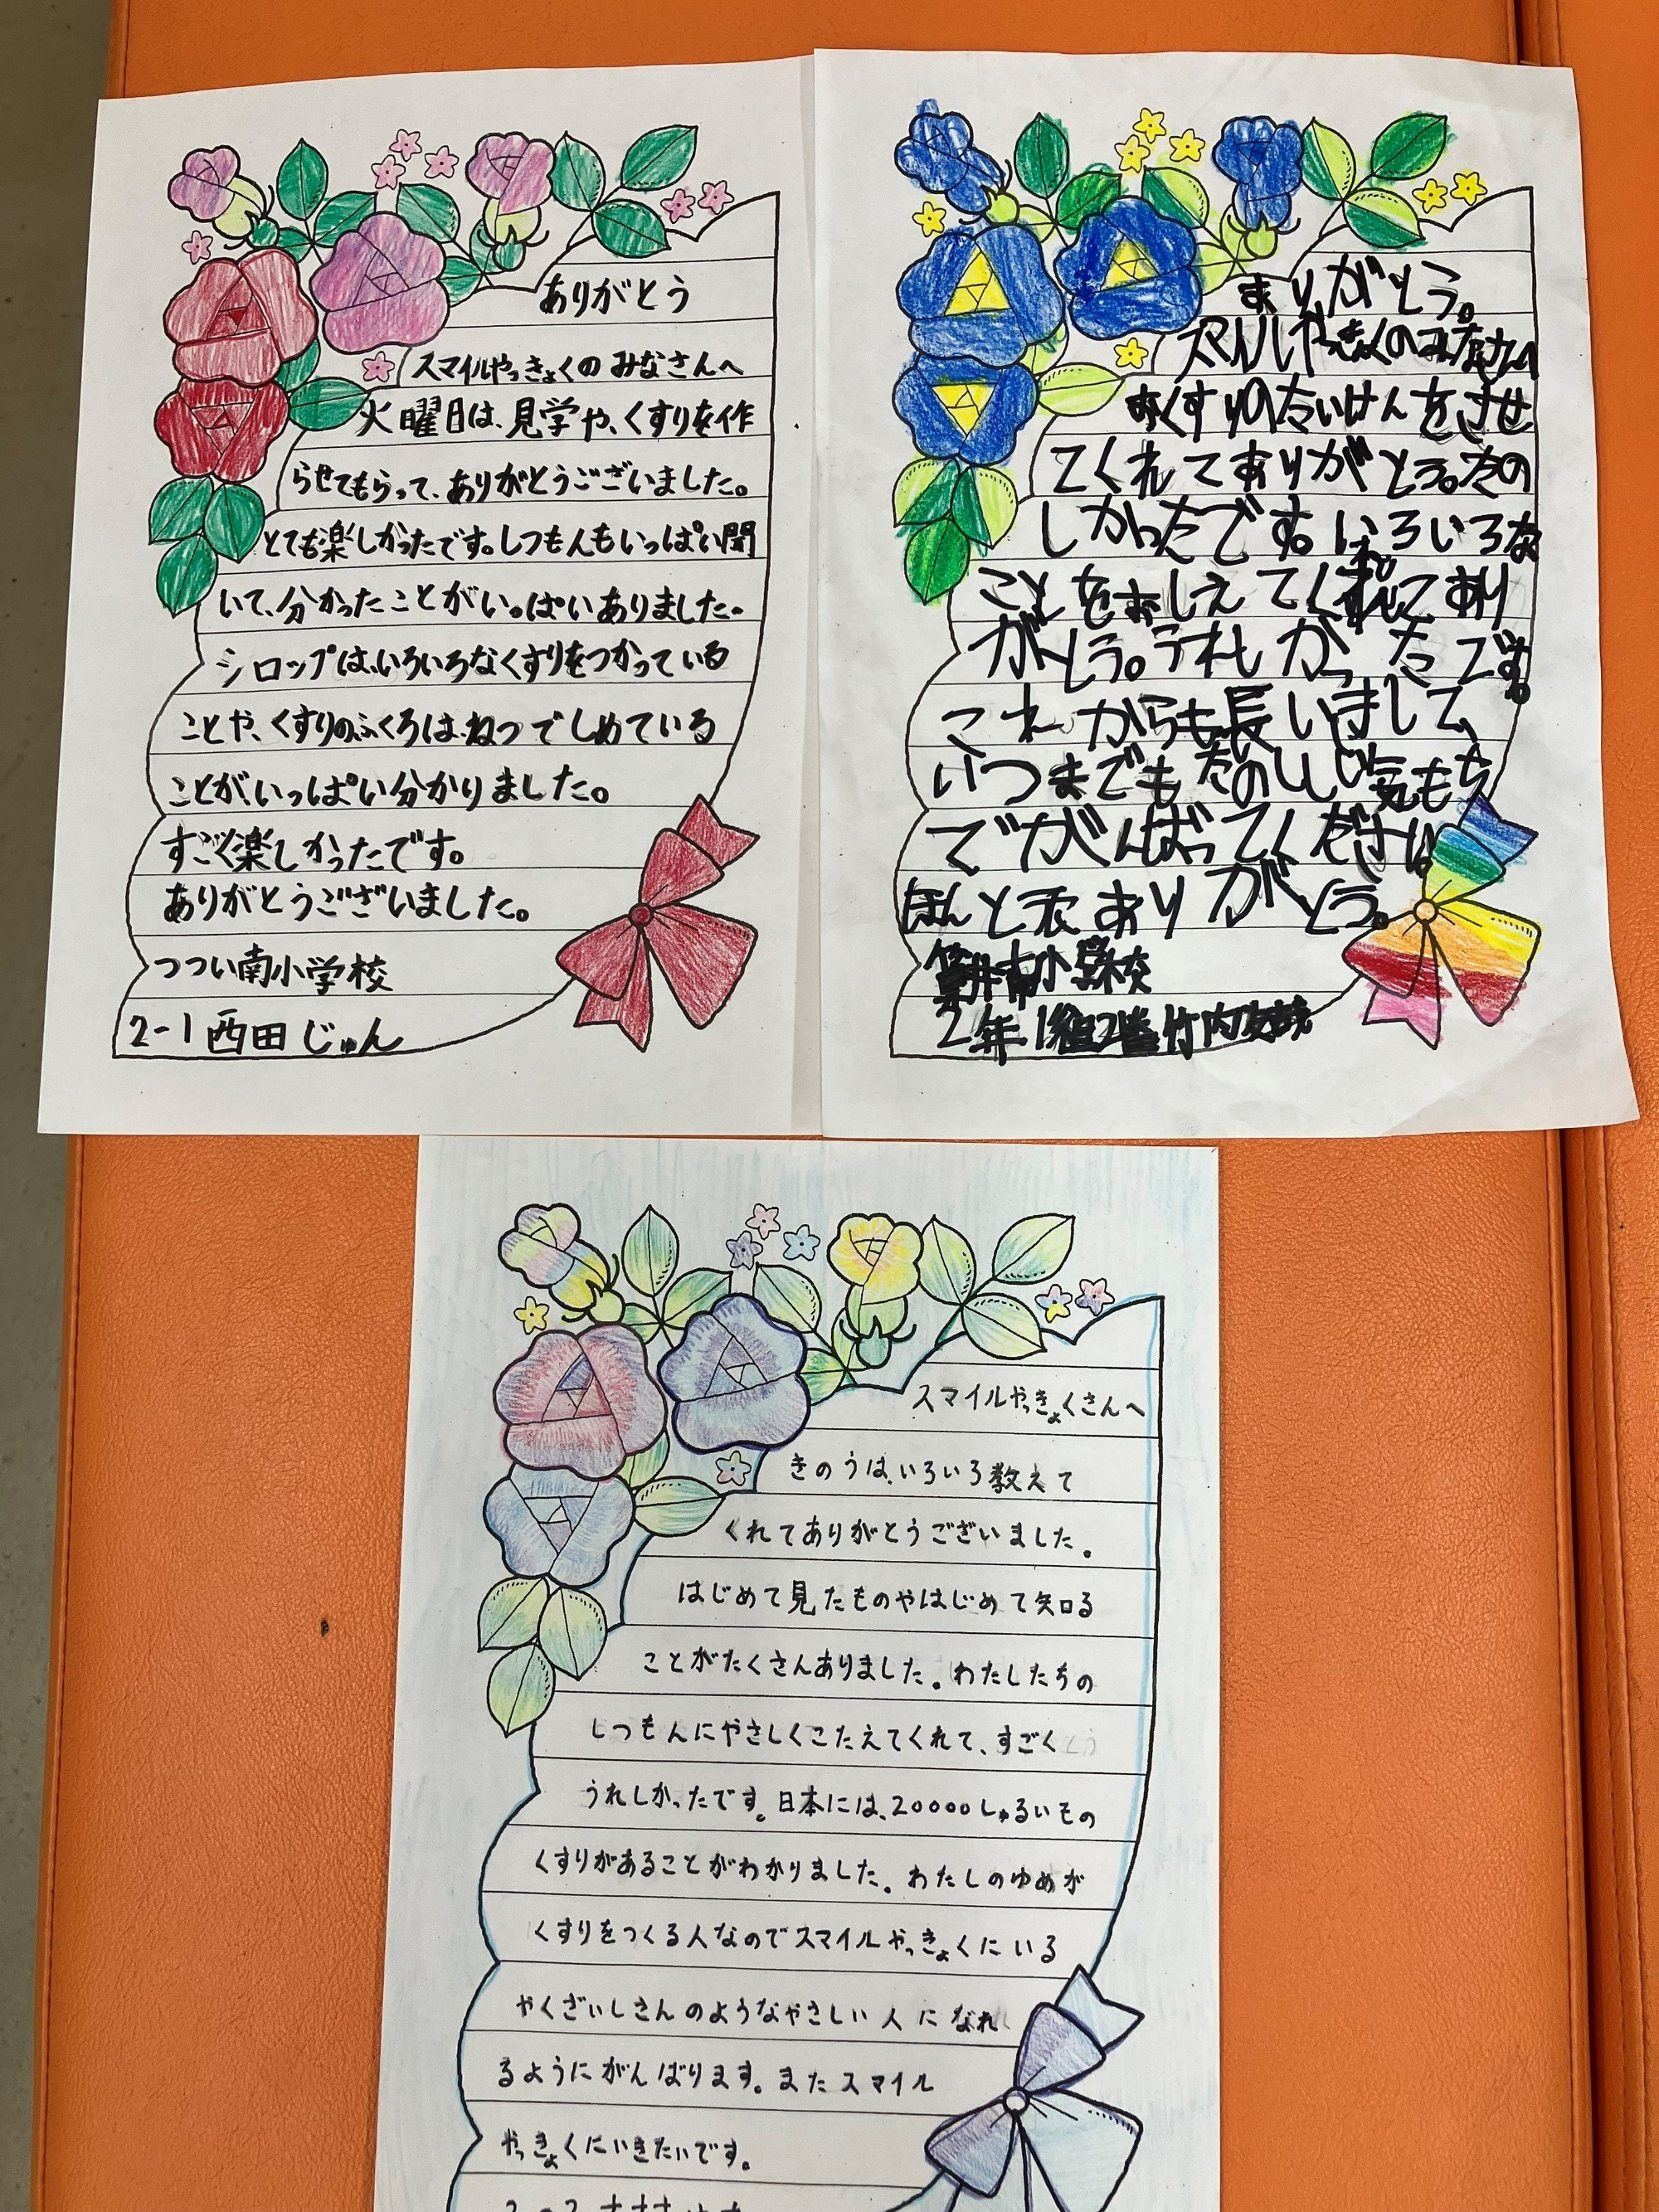 ありがとう
スマイルやっきょくのみなさんへ
火曜日は、見学や、くすりを作
らせてもらって、ありがとうございました。
とても楽しかったです。しつもんもいっぱい聞
いて、分かったことがいっぱいありました。
シロップは、いろいろなくすりをつかっている
ことや、くすりのふくろは、ねつでしめている
ことが、いっぱい分かりました。
すごく楽しかったです。
ありがとうございました。
つつい南小学校
2-1 西田じゅん
ありがとう。
スマイルやっきょくのみなさんへ
おくすりのたいけんをさせ
てくれてありがとう。たの
しかったです。いろいろな
ことをおしえてくれてあり
がとう。うれしかったです。
これからも長いまして、
いつまでもたのしい気もち
でがんばってください
ほんとにありがとう。
筒井南小学校
2年1組2番竹内
スマイルやっきょくさんへ
きのうは、いろいろ教えて
くれてありがとうございました。
はじめて見たものやはじめて知る
ことがたくさんありました。わたしたちの
しつもんにやさしくこたえてくれて、すごく
うれしかったです。日本には、20000しゅるいもの
くすりがあることがわかりました。わたしのゆめが
くすりをつくる人なのでスマイルやっきょくにいる
やくざいしさんのようなやさしい人になれ
るようにがんばります。またスマイル
やっきょくにいきたいです。